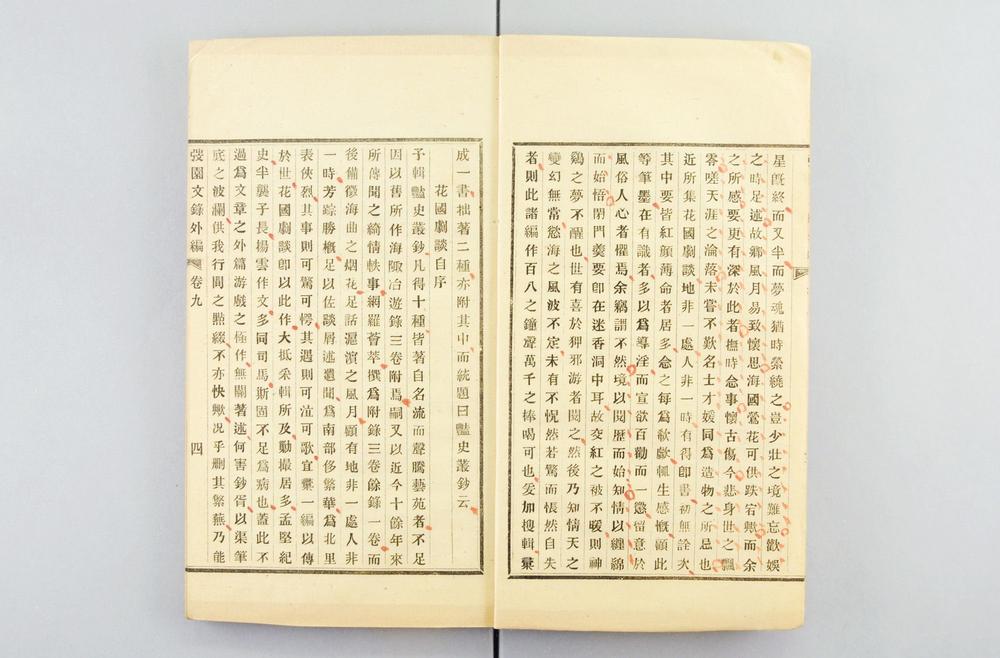 星既終而又半而夢魂猶時縈繞之豈少壯之境難忘歡娛
之時足述故鄉風月易致懷思海國鶯花可供跌宕興而余
之所感要更有深於此者撫時念事懷古傷今悲身世之飄
零嗟天涯之淪落未嘗不歎名士才媛同爲造物之所忌也
近所集花國劇談地非一處人非一時有得卽書初無詮次
其中要皆紅顏薄命者居多念之每爲欷歔輒生感慨顧此
等筆墨在有識者多以爲導淫而宣欲百勸而一懲留意於
風俗人心者懼焉余竊謂不然境以閱歷而始知情以纏綿
而始悟閉門羹要卽在迷香洞中耳故交紅之被不暖則神
鷄之夢不醒也世有喜於狎邪游者閱之然後乃知情天之
變幻無常慾海之風波不定未有不怳然若驚而悵然自失
者則此諸編作百八之鐘聲萬千之棒喝可也爰加搜輯彙
成一書拙著二種亦附其中而統題曰豔史叢鈔云
花國劇談自序
予輯豔史叢鈔凡得十種皆著自名流而聲騰藝苑者不足
因以舊所作海陬冶遊錄三卷附焉嗣又以近今十餘年來
所傳聞之綺情軼事網羅薈萃撰爲附錄三卷餘錄一卷而
後備徵海曲之烟花足話滬濱之風月顧有地非一處人非
一時芳踪勝概足以佐談屑述遺聞爲南部侈繁華爲北里
表俠烈其事則可驚可愕其遇則可泣可歌宜彙一編以傳
於世花國劇談卽以此作大抵采輯所及勦撮居多孟堅紀
史半襲子長揚雲作文多同司馬斯固不足爲病也蓋此不
過爲文章之外篇游戲之極作無關著述何害鈔胥以渠筆
底之波瀾供我行間之點綴不亦快歟况乎刪其繁蕪乃能
弢園文錄外編 卷九 四